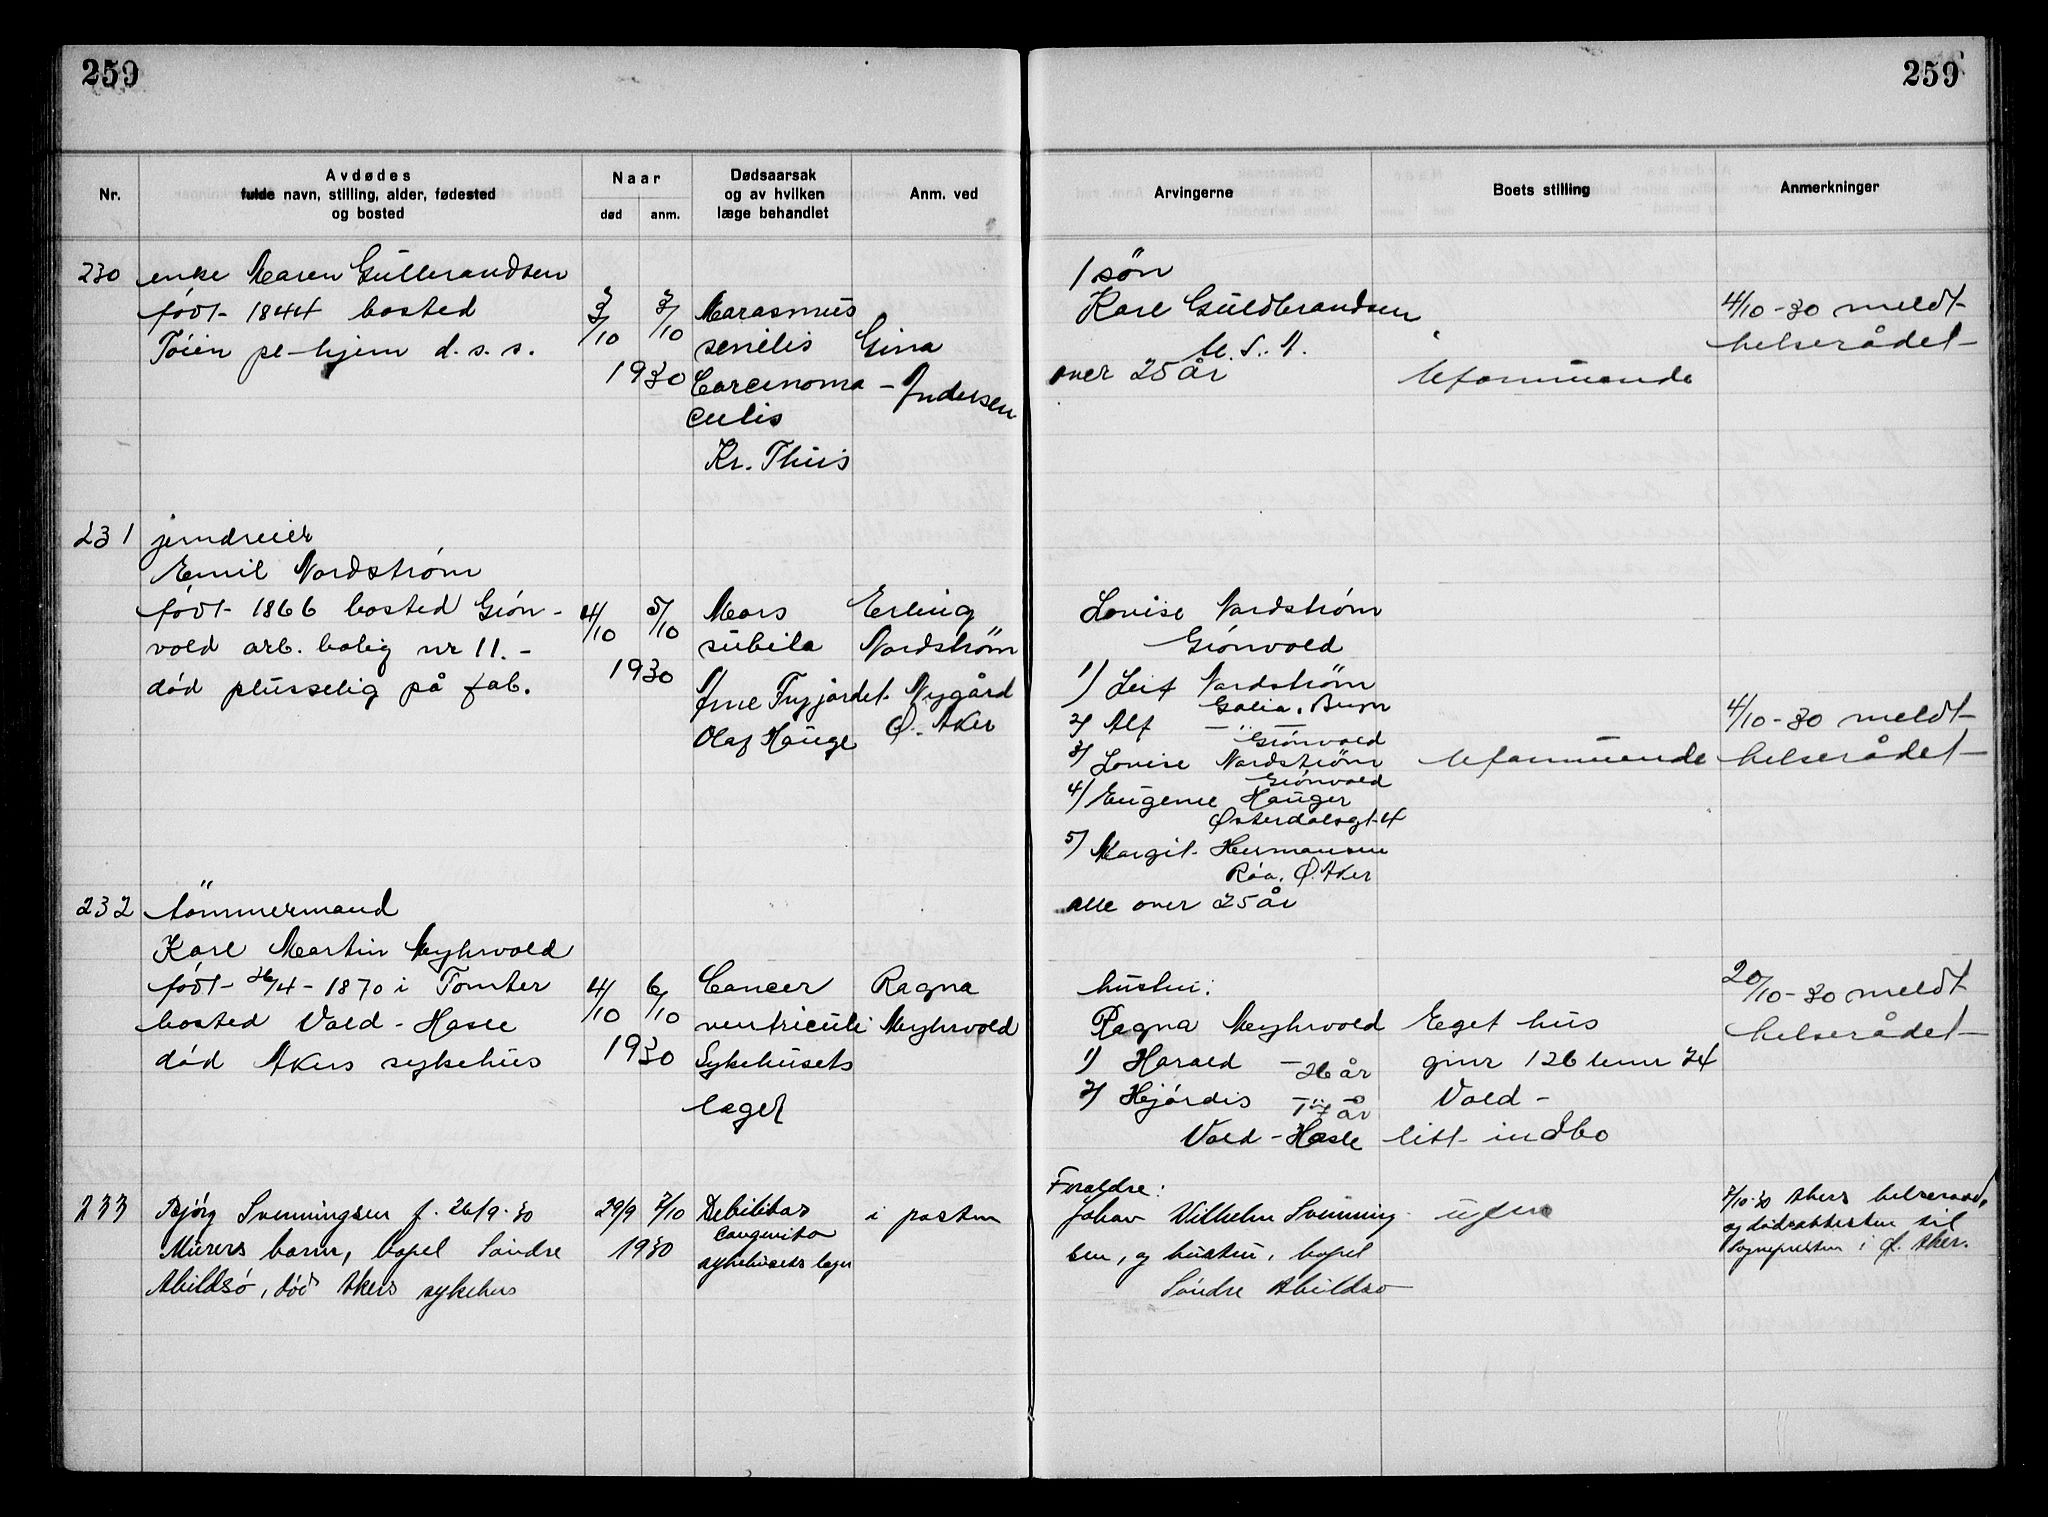 259
259
Nr.
Avdødes
fulde navn, stilling, alder, fødested
og bosted
Naar
død
anm.
Dødsaarsak
og av hvilken
læge behandlet
Anm. ved
Arvingerne
Boets stilling
Anmerkninger
230
enke Maren Gulbrandsen
født 1844 bosted
Tøien pl-hjem d.s.s.
3/10
3/10
1930
Marasmus
senilis
Carcinoma
cutis
Kr. Thuis
Gina
Andersen
1 søn
Karl Guldbrandsen
U.S.A.
over 25 år
Uformuende
4/10-30 meldt
helserådet
231
jerndreier
Emil Nordstrøm
født 1866 bosted Grøn-
vold arb. bolig nr 11.-
død plusselig på fab.
4/10
5/10
1930
Mors
subita
Arne Fryjordet
Olaf Hauge
Erling
Nordstrøm
Nygård
Ø. Aker
Lovise Nordstrøm
Grønvold
1) Leif Nordstrøm
Galia, Bryn
2) Alf - " -
Grønvold
3) Lovise Nordstrøm
Grønvold
4) Eugenie Hauger
Østerdalsgt 4
5) Margit Hermansen
Røa, Ø. Aker
alle over 25 år
Uformuende
4/10-30 meldt
helserådet
232
tømmermand
Karl Martin Myhrvold
født 26/4-1870 i Tomter
bosted Vold-Hasle
død Akers sykehus
4/10
6/10
1930
Cancer
ventriculi
Sykehusets
læge
Ragna
Myhrvold
hustru:
Ragna Myhrvold
1) Harald - 26 år
2) Hjørdis - " - år
Vold-Hasle
Eget hus
gnr 126 bnr 74
Vold-
litt indbo
20/10-30 meldt
helserådet
233
Bjørg Svenningsen f. 26/9-30
Murers barn, bopel Søndre
Abildsø, død Akers sykehus
29/9
7/10
1930
Debilitas
congenita
sykehusets læge
i posten
Foreldre:
Johan Wilhelm Svenning-
sen, og hustru, bopel
Søndre Abildsø
ufm
7/10-30 Akers helseraad,
og dødsattesten til
Sognepresten i Ø. Aker.